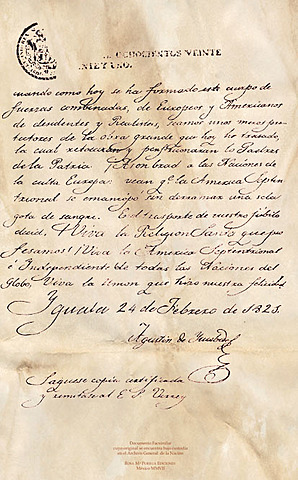 OCHOCIENTOS VEINTE
NTE Y UNO.
cuando como hoy se ha formado este cuerpo de
fuerzas combinadas, de Europeos y Americanos
de desidentes y Realistas, seremos unos meros pro-
tectores de la obra grande que hoy he trazado,
la cual retocarán y perfeccionarán los Padres
de la Patria. Asombrad a las Naciones de
la culta Europa: vean qe. la America Septen
trional se emancipó sin derramar una sola
gota de sangre. En el trasporte de vuestro jubilo
decid: ¡Viva la Religion Santa que pro
fesamos! ¡Viva la America Septentrional
é Independiente de todas las Naciones del
Globo! ¡Viva la union que hizo nuestra felicidad
Yguala 24 de Febrero de 1821.
Agustin de Yturbide
Saquese copia certificada
y remitase al E. S. Virrey
Documento Facsimilar
cuyo original se encuentra bajo custodia
en el Archivo General de la Nación
México MMVII